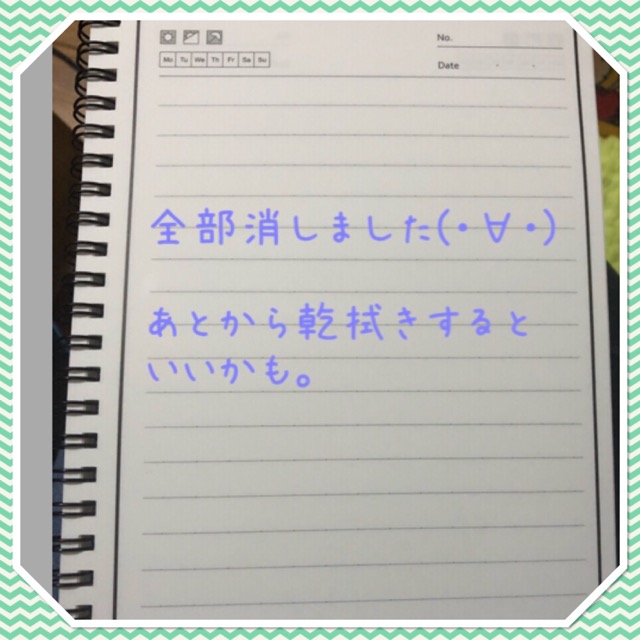 No.
Mo Tu We Th Fr Sa Su
Date
全部消しました(・∀・)
あとから乾拭きすると
いいかも。